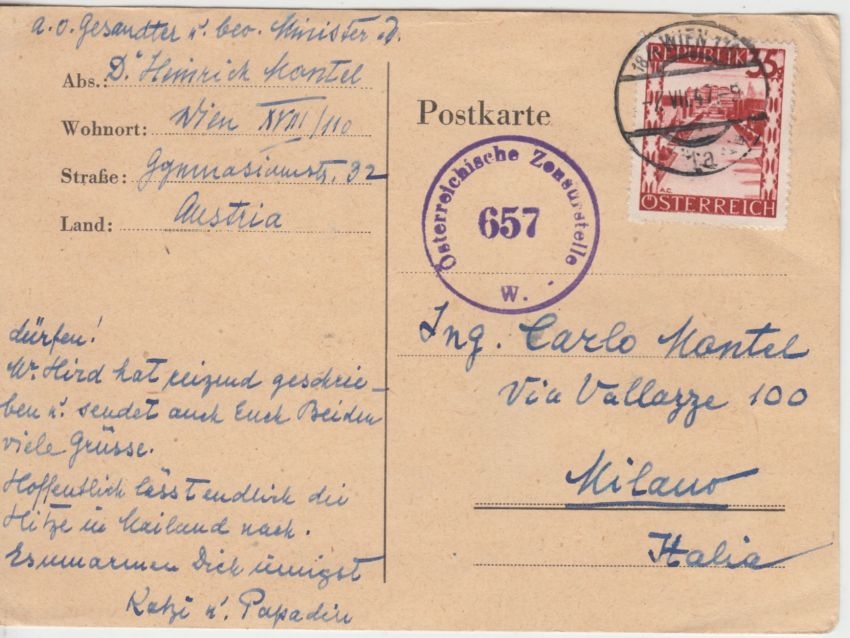 a.o. Gesandter u. bev. Minister a.D.
Abs.: Dr. Heinrich Montel
Wohnort: Wien XVIII/110
Straße: Gymnasiumstr. 32
Land: Austria
dürfen!
Mr. Hird hat reizend geschrie-
ben u. sendet auch Euch Beiden
viele Grüsse.
Hoffentlich lässt endlich die
Hitze in Mailand nach.
Es umarmen Dich innigst
Katzi u.
Postkarte
Österreichische Zensurstelle
657
W.
WIEN
VII. 47
REPUBLIK 35
ÖSTERREICH
Ing. Carlo Montel
Via Vallazze 100
Milano
Italia